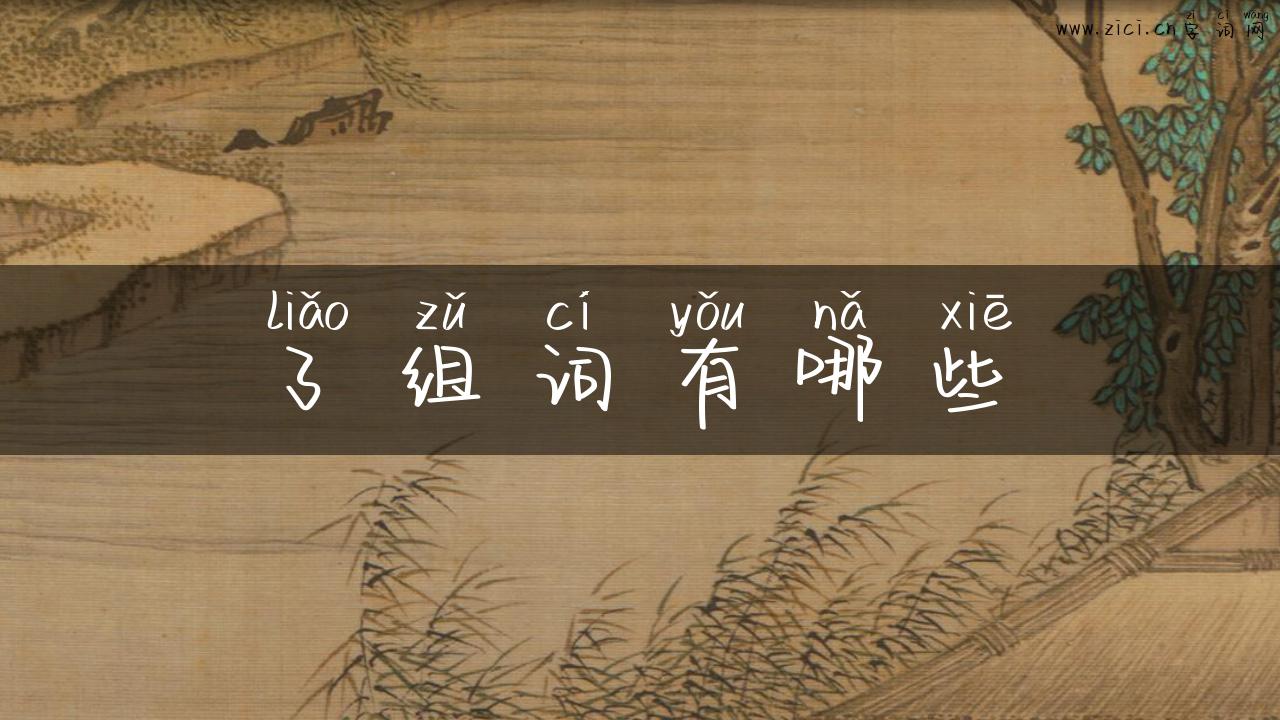 zì cí wǎng
www.zici.cn 字词网
liǎo zǔ cí yǒu nǎ xiē
了组词有哪些